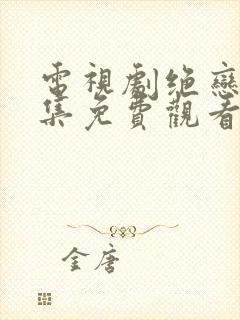 電視劇绝戀
集免費觀看
金唐